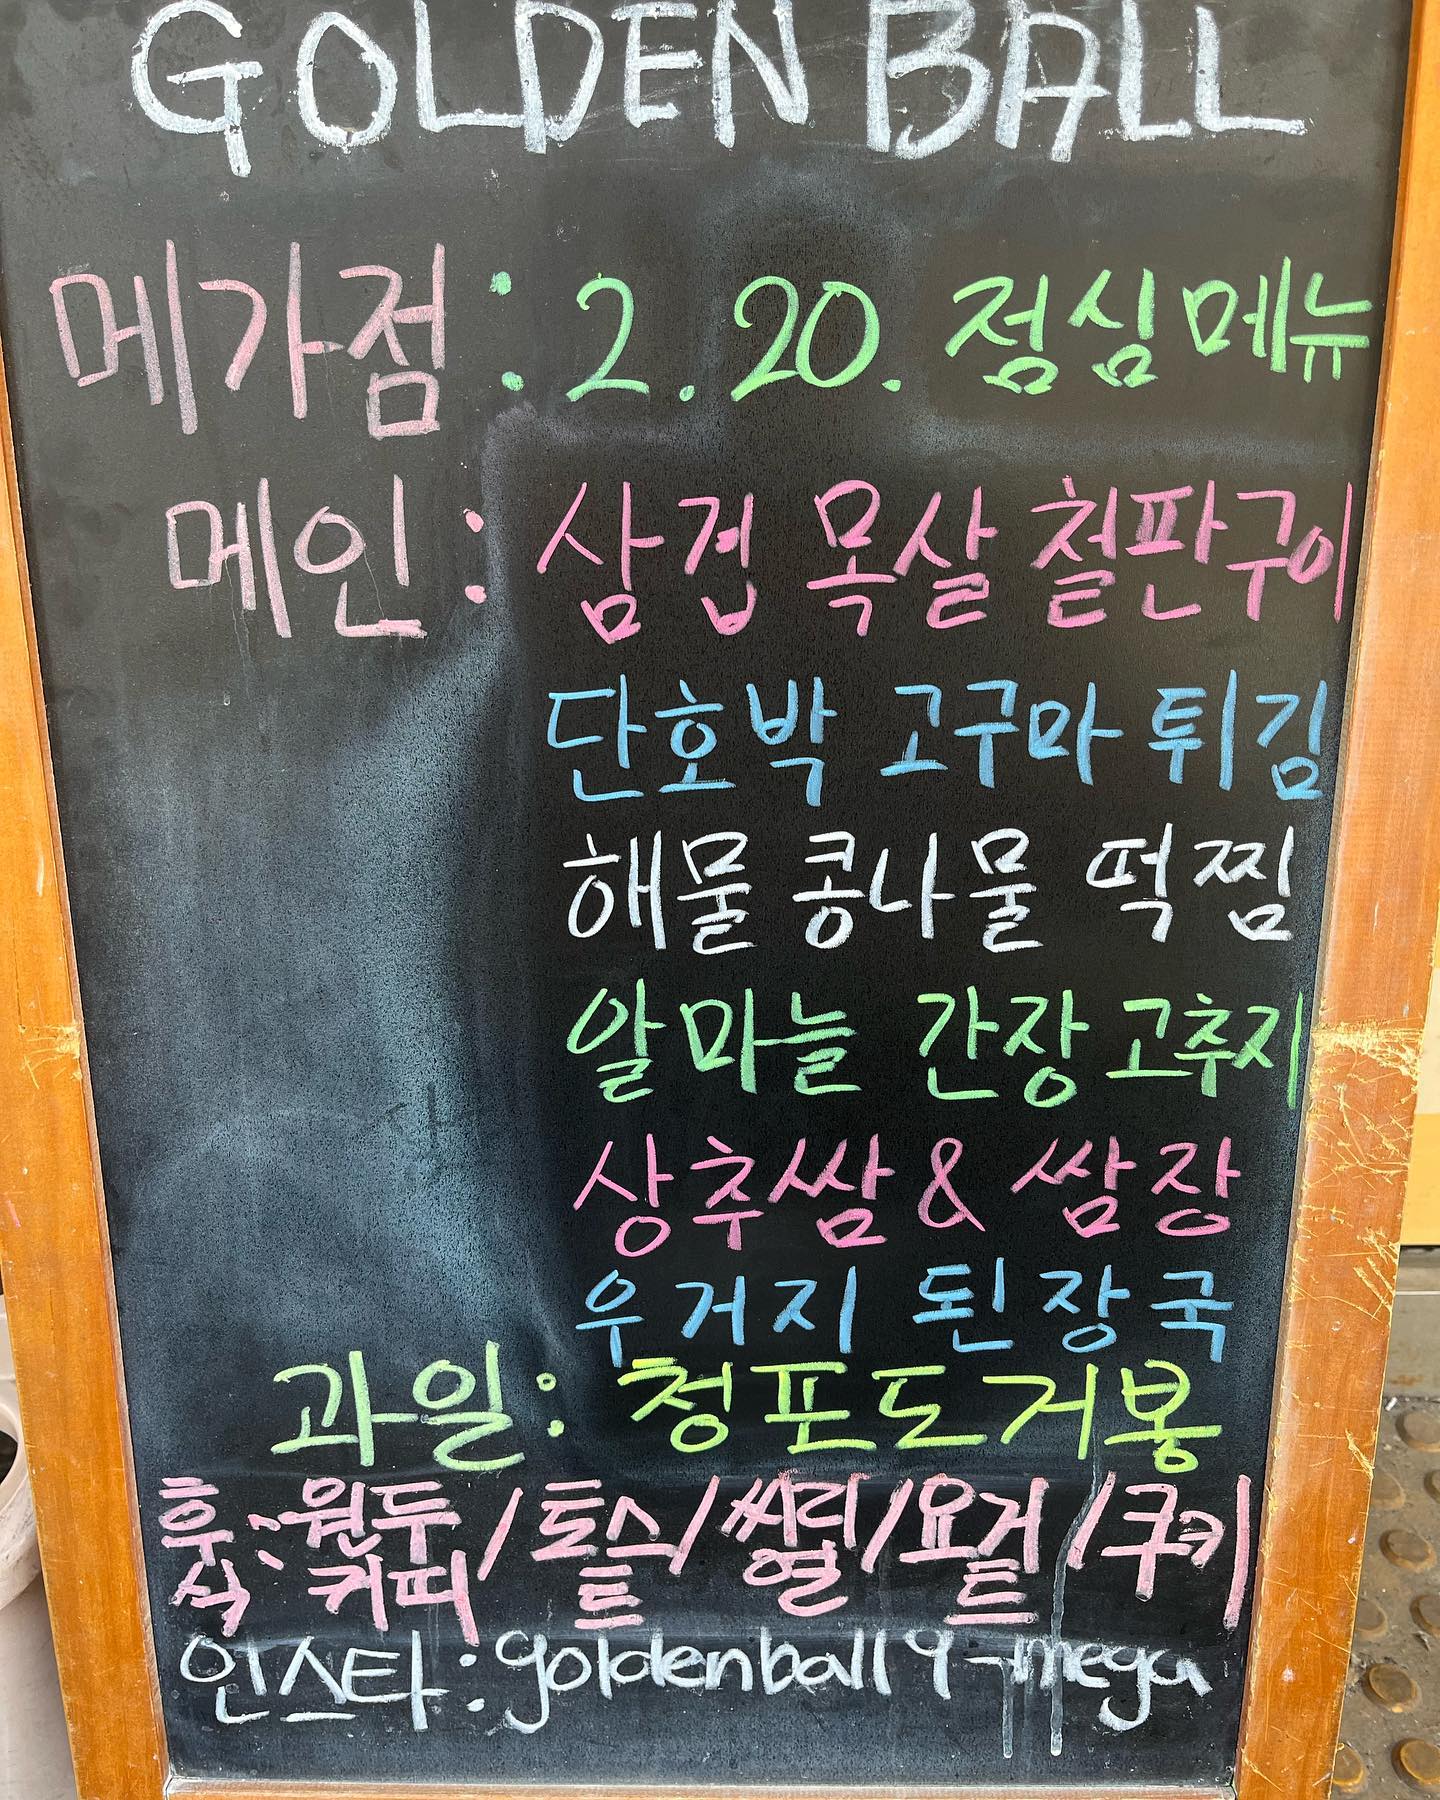 GOLDEN BALL
메가점 : 2.20. 점심메뉴
메인 : 삼겹 목살 철판구이
단호박 고구마 튀김
해물 콩나물 떡찜
알마늘 간장 고추지
상추쌈 & 쌈장
우거지 된장국
과일 : 청포도 거봉
후식 : 원두커피 / 토스트 / 씨리열 / 요거트 / 쿠키
인스타 : goldenball9-mega